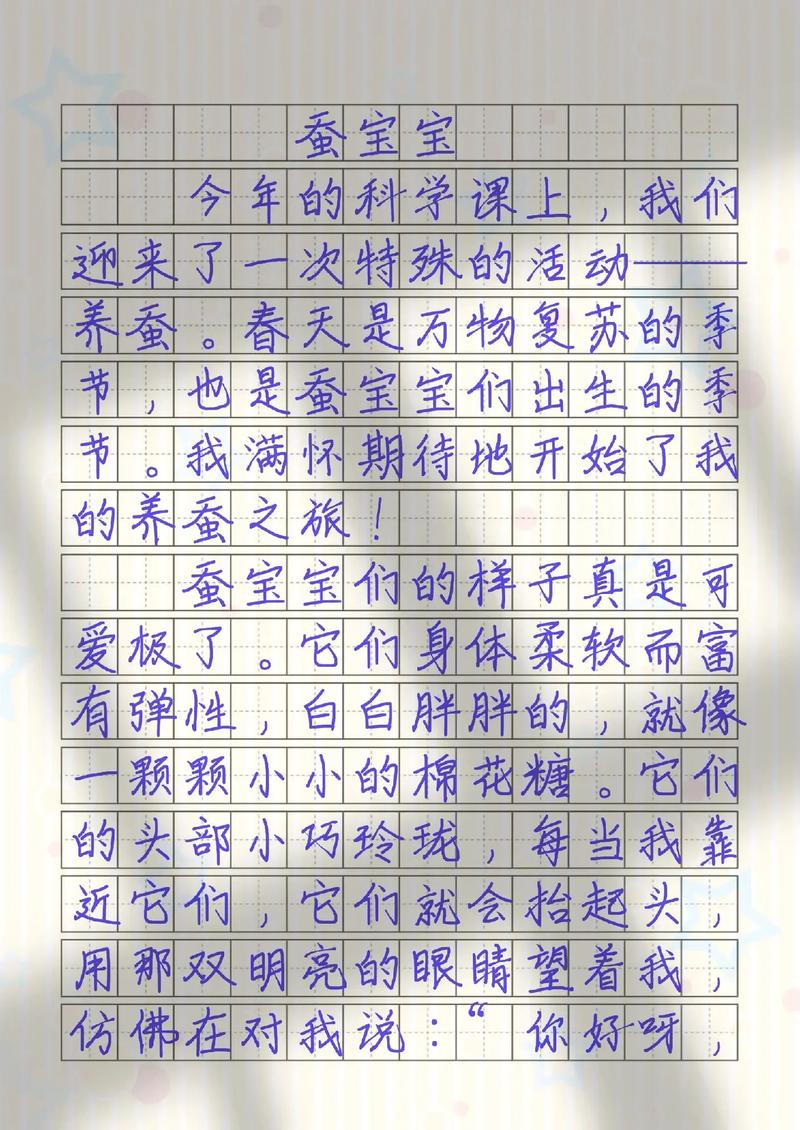 蚕宝宝
今年的科学课上，我们
迎来了一次特殊的活动——
养蚕。春天是万物复苏的季
节，也是蚕宝宝们出生的季
节。我满怀期待地开始了我
的养蚕之旅！
蚕宝宝们的样子真是可
爱极了。它们身体柔软而富
有弹性，白白胖胖的，就像
一颗颗小小的棉花糖。它们
的头部小巧玲珑，每当我靠
近它们，它们就会抬起头，
用那双明亮的眼睛望着我，
仿佛在对我说：“你好呀，